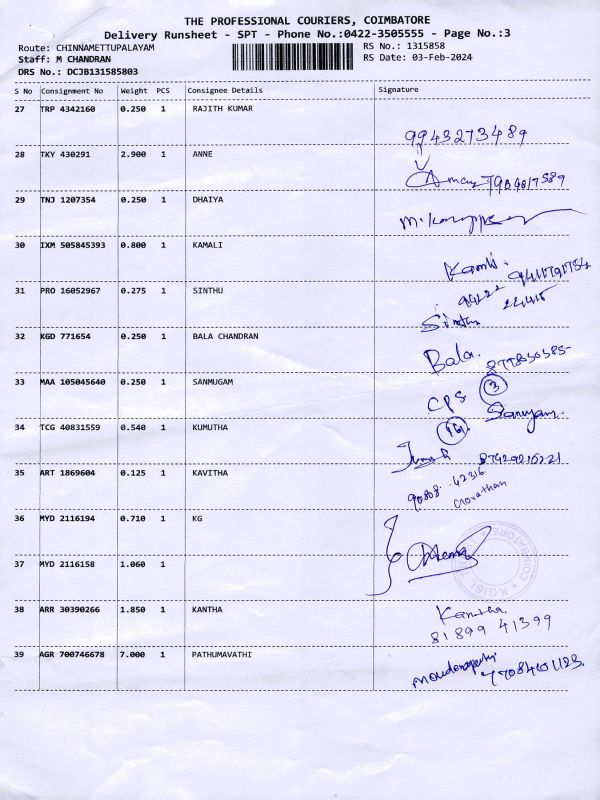 THE PROFESSIONAL COURIERS, COIMBATORE
Delivery Runsheet - SPT - Phone No.:0422-3505555 - Page No.:3
Route: CHINNAMETTUPALAYAM RS No.: 1315858
Staff: M CHANDRAN RS Date: 03-Feb-2024
DRS No.: DCJB131585803
S No Consignment No Weight PCS Consignee Details Signature
27 TRP 4342160 0.250 1 RAJITH KUMAR
9943273489
28 TKY 430291 2.900 1 ANNE
29 TNJ 1207354 0.250 1 DHAIYA
30 IXM 505845393 0.800 1 KAMALI
31 PRO 16052967 0.275 1 SINTHU
32 KGD 771654 0.250 1 BALA CHANDRAN
Bala.
33 MAA 105045640 0.250 1 SANMUGAM
CPS 3
34 TCG 40831559 0.540 1 KUMUTHA
35 ART 1869604 0.125 1 KAVITHA
90808 42316
36 MYD 2116194 0.710 1 KG
37 MYD 2116158 1.060 1
38 ARR 30390266 1.850 1 KANTHA
Kantha
81899 41399
39 AGR 700746678 7.000 1 PATHUMAVATHI